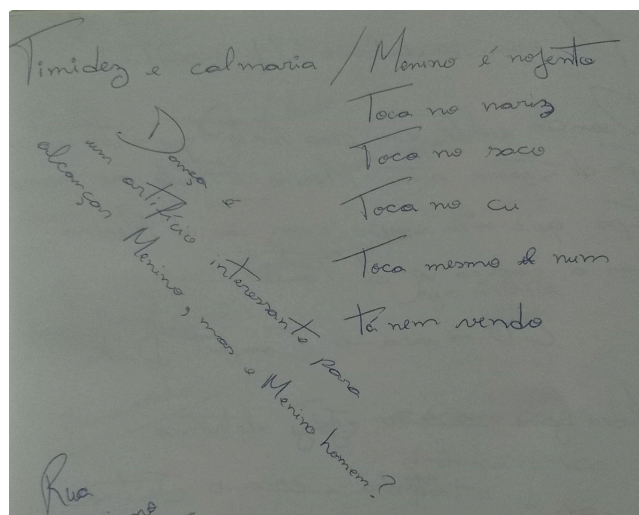 Timidez e calmaria / Menino é nojento
Toca no nariz
Toca no saco
Toca no cu
Toca mesmo e num
tá nem vendo
Dança é
um artifício interessante para
alcançar Menino, mas e Menino homem?
Rua